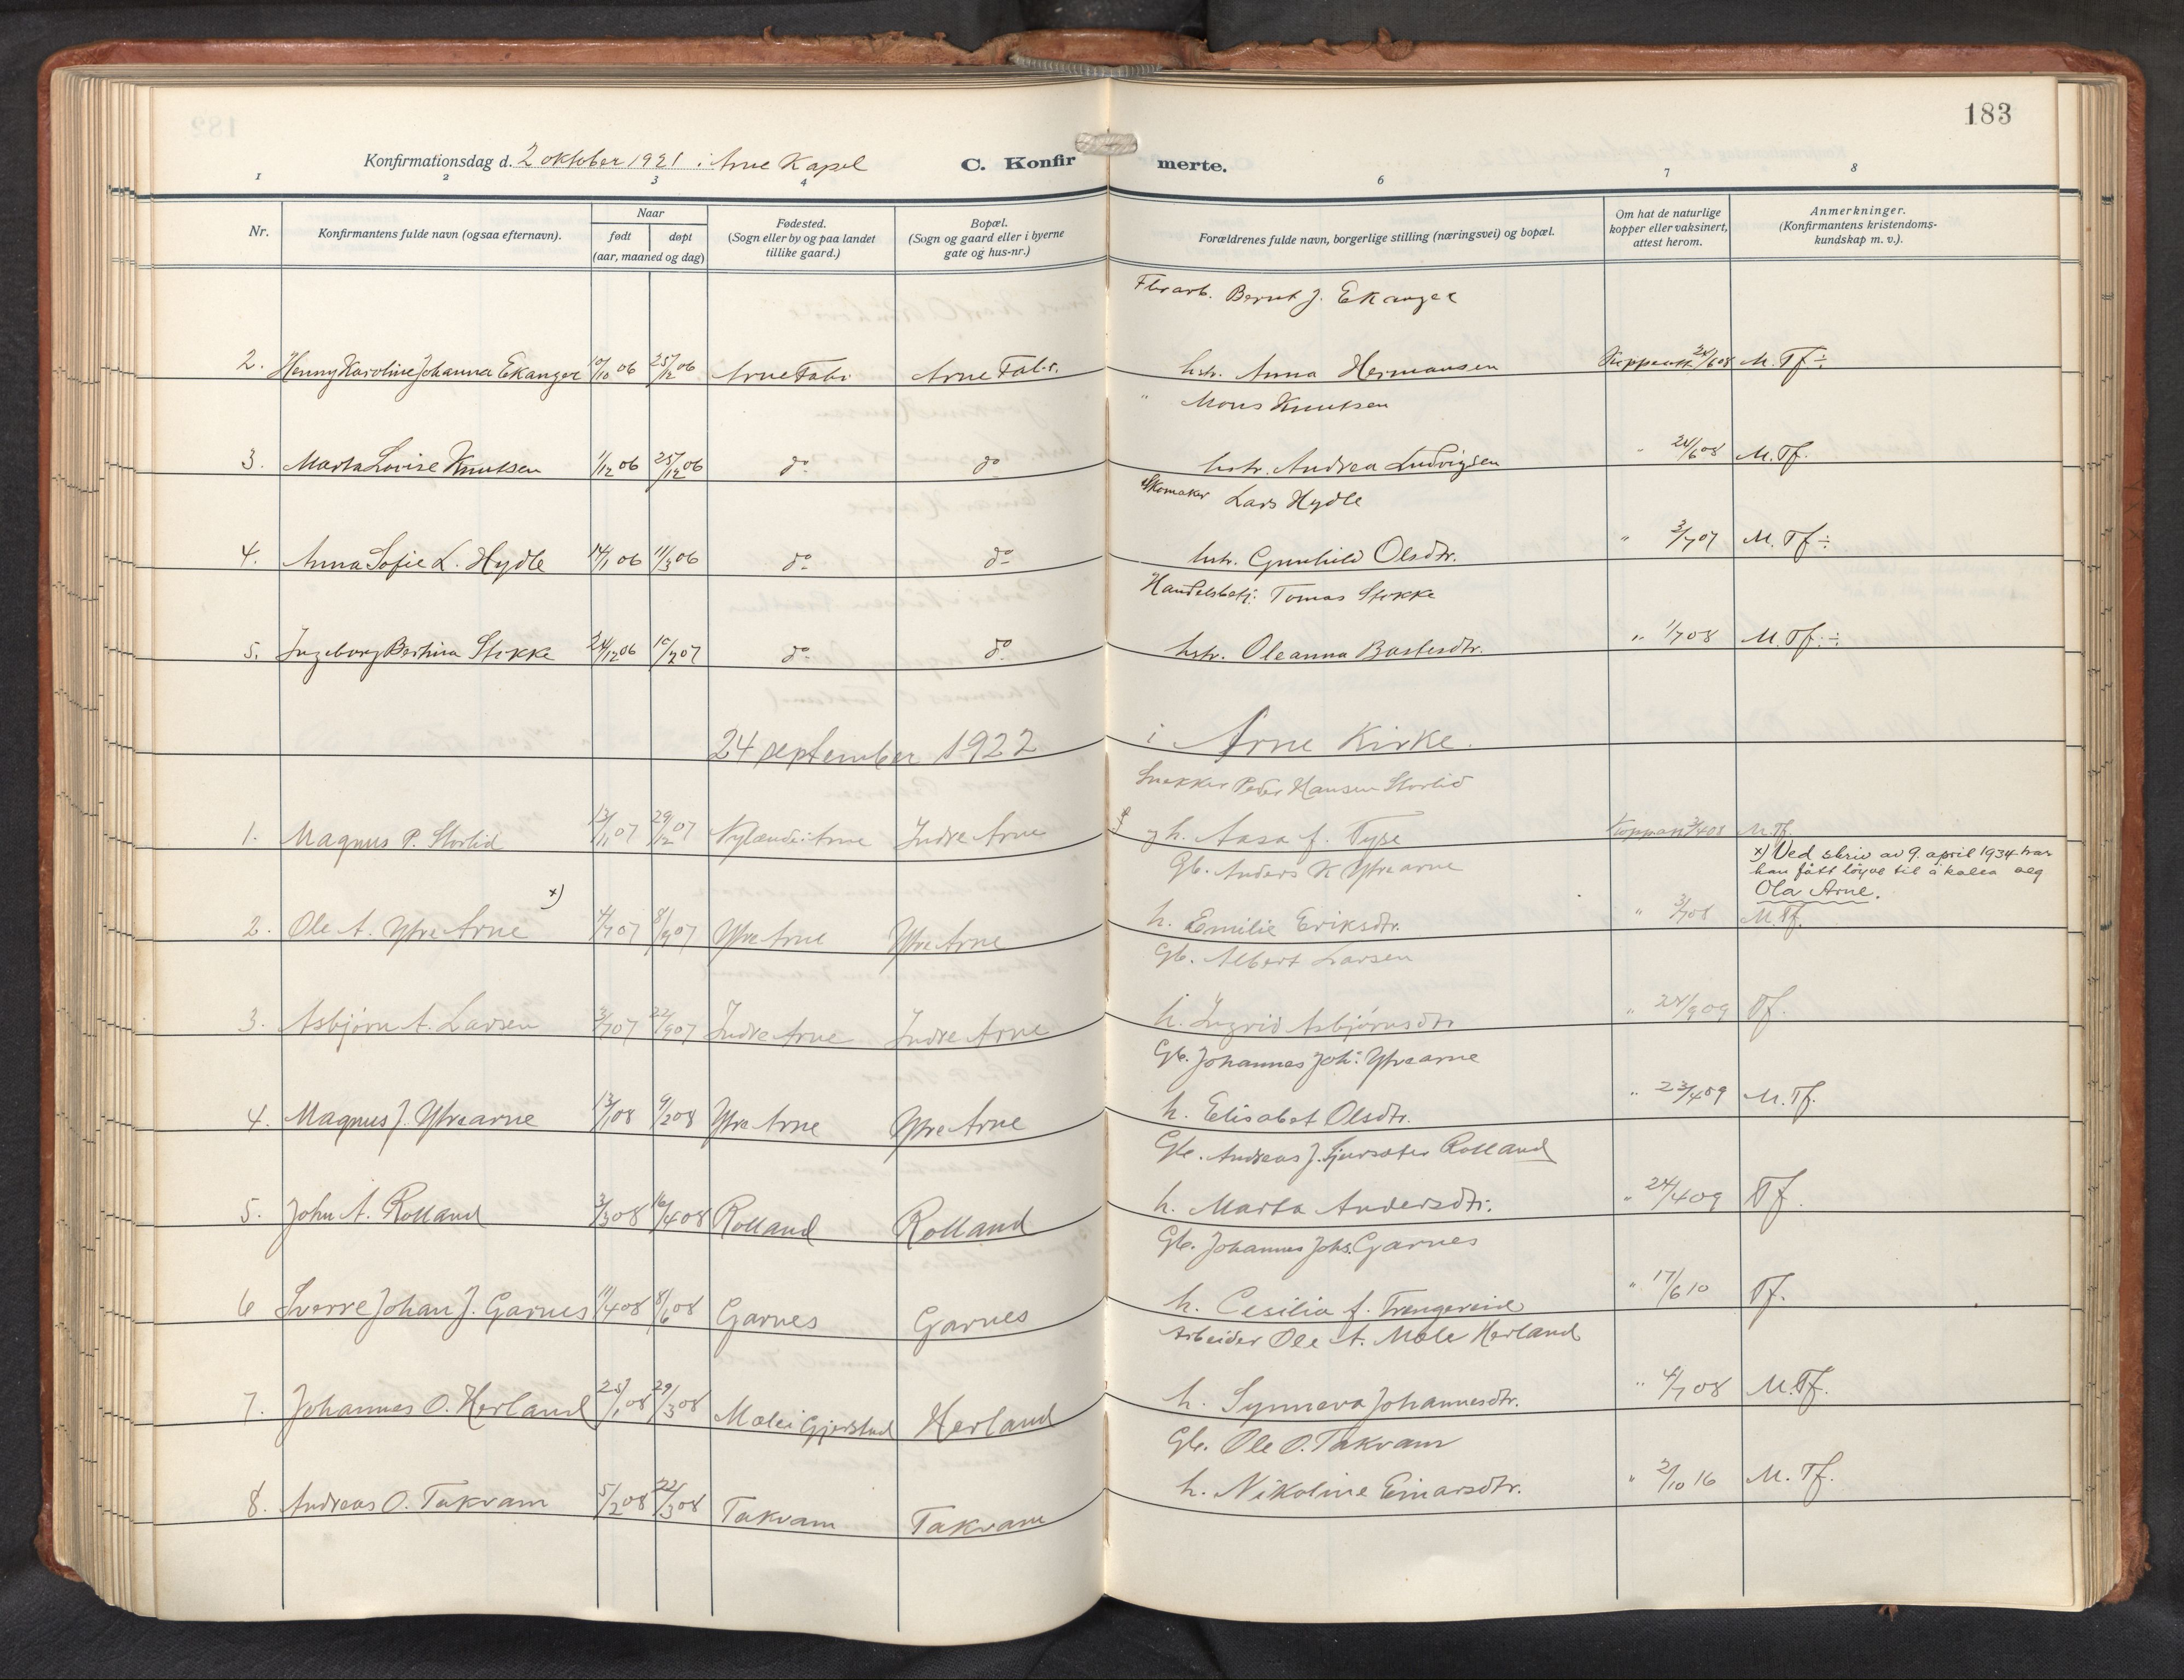 183
Konfirmationsdag d. 2 oktober 1921 i Arne Kapel
C. Konfirmerte.
1 2 3 4 6 7 8
Nr.
Konfirmantens fulde navn (ogsaa efternavn).
Naar
født døpt
(aar, maaned og dag)
Fødested.
(Sogn eller by og paa landet
tillike gaard.)
Bopæl.
(Sogn og gaard eller i byerne
gate og hus-nr.)
Forældrenes fulde navn, borgerlige stilling (næringsvei) og bopæl.
Om hat de naturlige
kopper eller vaksinert,
attest herom.
Anmerkninger.
(Konfirmantens kristendoms-
kundskap m. v.).
Bernt J. Ekanger
2. Henny Karoline Johanna Ekanger 10/10 06 25/12 06 Arne Fabr. Arne Fabr. hstr. Anna Hermansen 24/6 08 M. Tf ÷
" Mons Knutsen
3. Marta Lovise Knutsen 1/12 06 25/12 06 do do hstr. Andrea Ludvigsen " 24/6 08 M. Tf.
Skomaker Lars Hydle
4. Anna Sofie L. Hydle 14/1 06 11/3 06 do do hstr. Gunhild Olsdtr. " 3/7 07 M. Tf ÷
Handelsbetj. Tomas Stokke
5. Ingeborg Bertina Stokke 24/12 06 10/2 07 do do hstr. Oleanna Bastesdtr. " 1/7 08 M. Tf. ÷
24 september 1922 i Arne Kirke.
Snekker Peder Hansen Storlid
1. Magnus P. Storlid 13/11 07 29/12 07 Nylænde i Arne Indre Arne h. Aasa f. Tysse M. Tf.
Gb. Anders K Ytrearne
x) Ved skriv av 9. april 1934 har
han fått løyve til å kalla seg
Ola Arne.
2. Ole A. Ytre Arne x) 4/7 07 8/9 07 Ytre Arne Ytre Arne h. Emilie Eriksdtr. " 3/7 08 M. Tf.
Gb. Albert Larsen
3. Asbjørn A. Larsen 3/7 07 22/9 07 Indre Arne Indre Arne h. Ingrid Asbjørnsdtr " 24/9 09 Tf.
Gb. Johannes Joh: Ytrearne
4. Magnus J. Ytrearne 13/1 08 9/2 08 Ytre Arne Ytre Arne h. Elisabet Olsdtr. " 23/4 09 M. Tf.
Gb. Andreas J. Rolland
5. John A. Rolland 3/3 08 16/4 08 Rolland Rolland h. Marta Andersdtr. " 24/4 09 Tf.
Gb. Johannes Johs. Garnes
6 Sverre Johan J. Garnes 11/4 08 8/6 08 Garnes Garnes h. Cesilia f. Trengereid " 17/6 10 Tf.
Arbeider Ole A. Mæle Herland
7. Johannes O. Herland 25/1 08 29/3 08 Mæle i Gjerstad Herland h. Synneva Johannesdtr. " 4/7 08 M. Tf.
Gb. Ole O. Takvam
8. Andreas O. Takvam 5/2 08 22/3 08 Takvam Takvam h. Nikoline Einarsdtr. " 2/10 16 M. Tf.